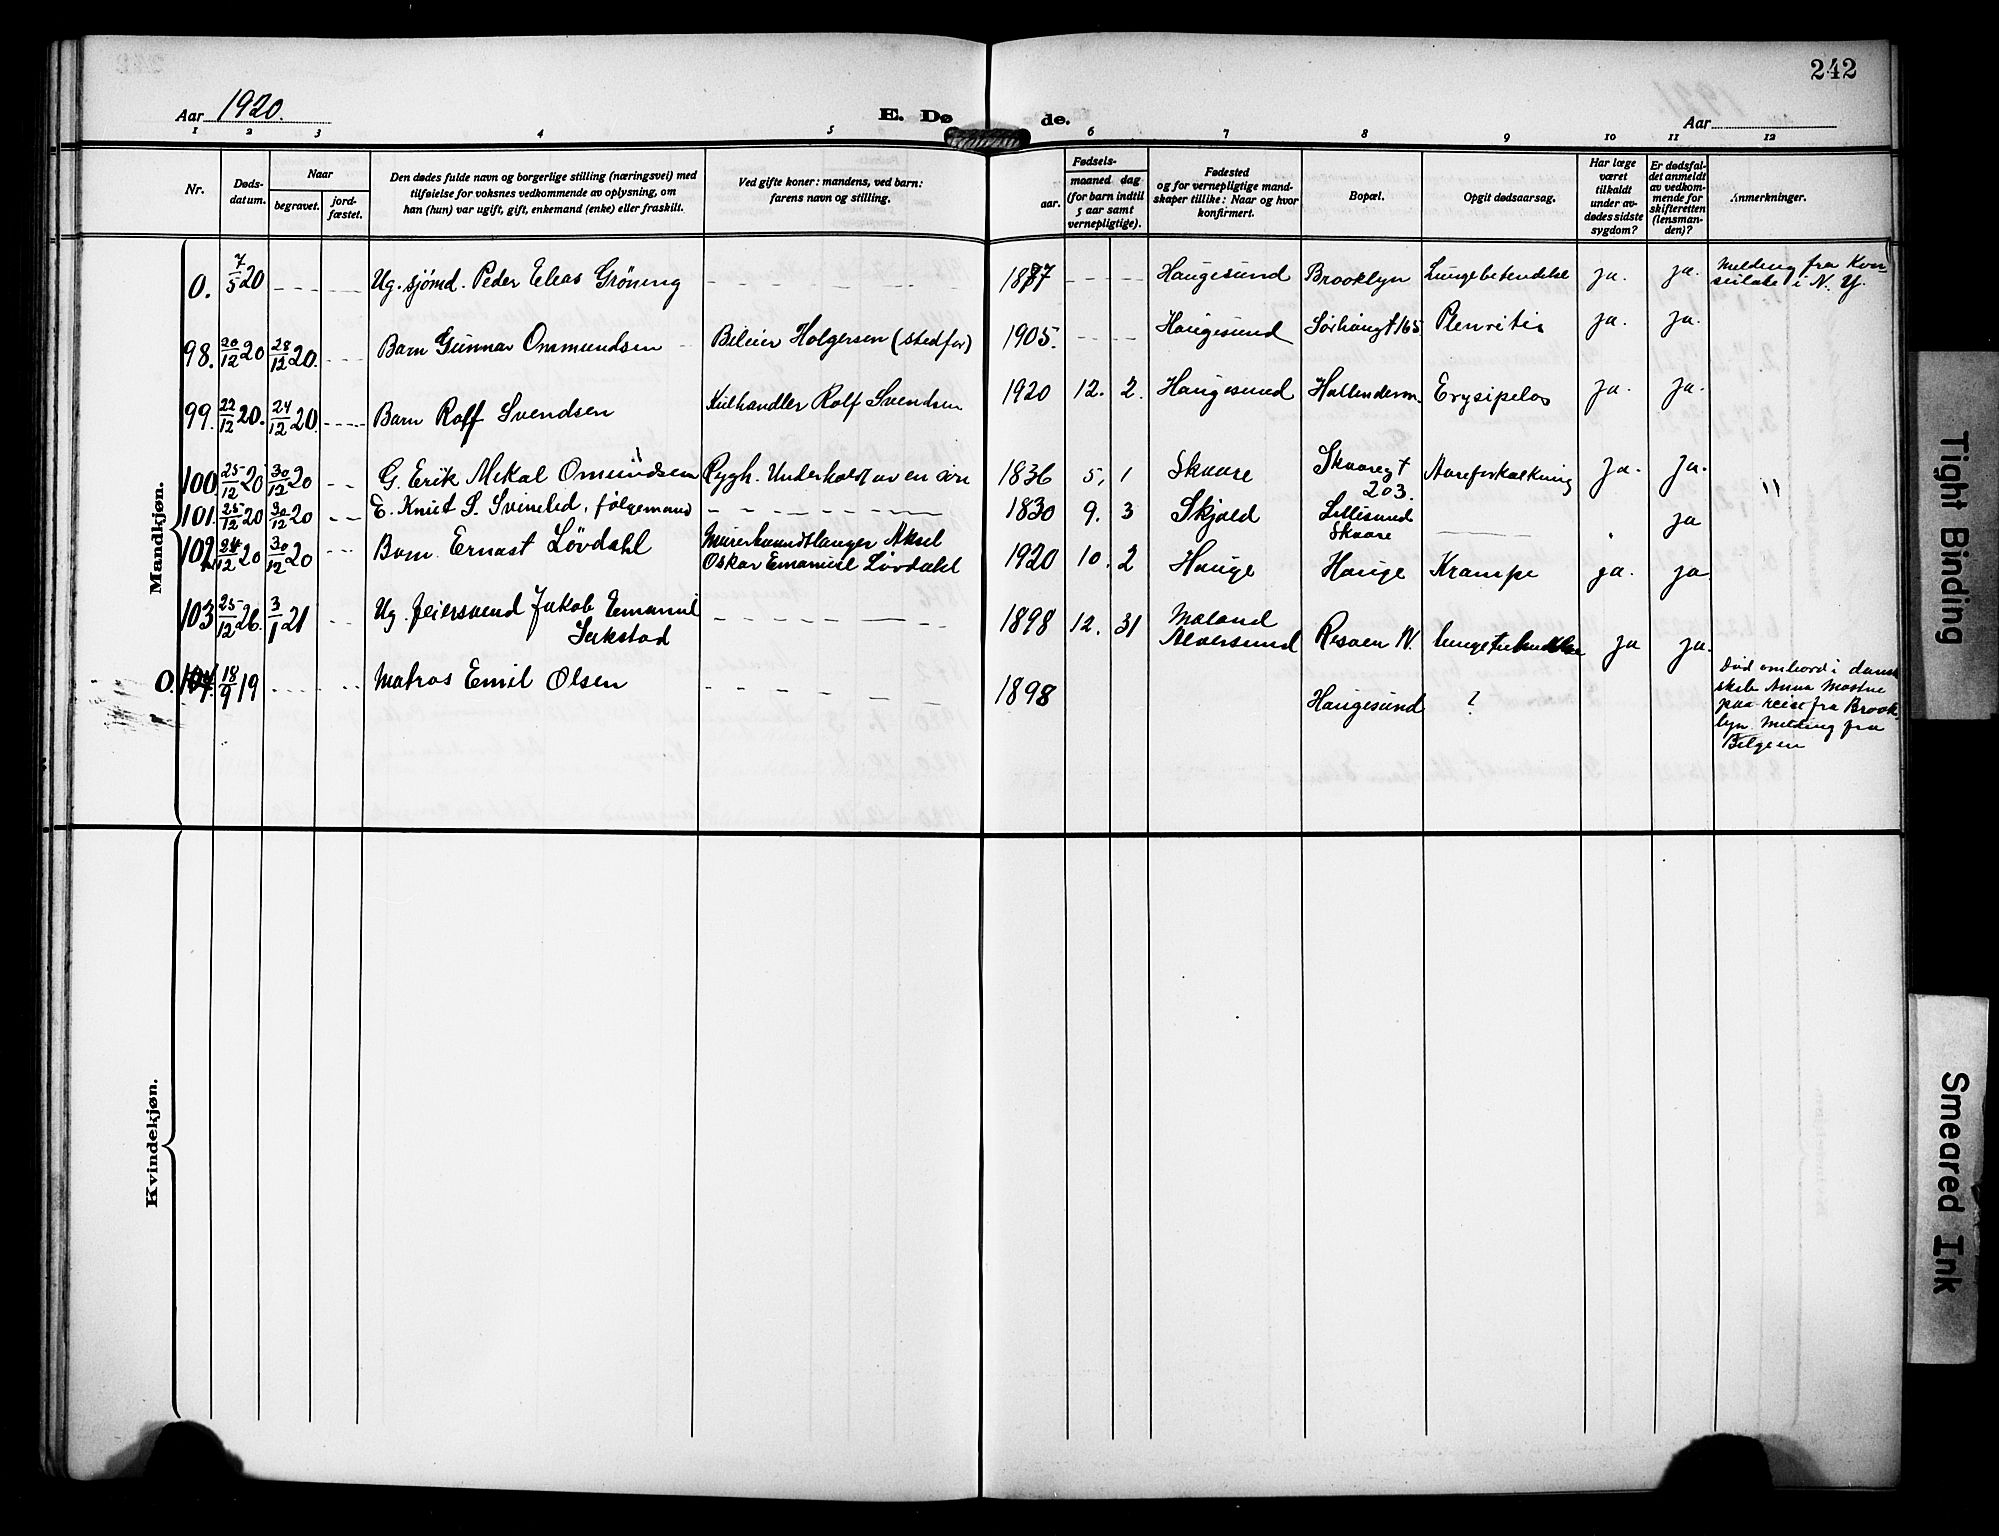 242
Aar 1920.
E. Dø
de.
Aar
1 2 3 4 5 6 7 8 9 10 11 12
Nr.
Døds-
datum.
Naar
begravet.
jord-
fæstet.
Den dødes fulde navn og borgerlige stilling (næringsvei) med
tilføielse for voksnes vedkommende av oplysning, om
han (hun) var ugift, gift, enkemand (enke) eller fraskilt.
Ved gifte koner: mandens, ved barn:
farens navn og stilling.
Fødsels-
aar.
maaned dag
(for barn indtil
5 aar samt
vernepligtige).
Fødested
og for vernepligtige mand-
skaper tillike: Naar og hvor
konfirmert.
Bopæl.
Opgit dødsaarsag.
Har læge
været
tilkaldt
under av-
dødes sidste
sygdom?
Er dødsfal-
det anmeldt
av vedkom-
mende for
skifteretten
(lensman-
den)?
Anmerkninger.
Mandkjøn.
0. 7/5 20 Ug. sjömd. Peder Elias Gröning 1877 Haugesund Brooklyn Lungebetendelse ja. ja. Melding fra Kon-
sulatet i N. Y.
98. 20/12 20 28/12 20. Barn Gunnar Ommundsen Bileier Holgersen (stedfar) 1905. Haugesund Sørhaugt 165 Plevritis ja. ja.
99. 22/12 20. 24/12 20. Barn Rolf Svendsen Kulhandler Rolf Svendsen 1920 12. 2. Haugesund Erysipelas ja. ja.
100. 25/12 20 30/12 20 G. Erik Mikal Omundsen Rygh. Underholdt av en 1836 5. 1 Skaare Skaaregt
203. Aareforkalkning ja. ja. "
101. 25/12 20 30/12 20 E. Knut S. følgemand 1830 9. 3 Skjold Lillesund
Skaare ja
102 24/12 20 30/12 20 Barn Ernast Lövdahl Murerhaandtlanger Aksel
Oskar Emanuel Lövdahl 1920 10. 2 Hauge Hauge Krampe ja. ja
103 25/12 26. 3/1 21 Ug. feiersvend Jakob Emanuel
Sekstad 1898 12. 31 Moland
Alversund Risøen N. lungetuberkulose ja ja.
0. 104. 18/9 19 Matros Emil Olsen 1898 Haugesund ? Död ombord i dansk
skib Anna Mostue
paa reise fra Brook-
lyn. Melding fra
Belgien
Kvindekjøn.
Tight Binding
Smeared Ink